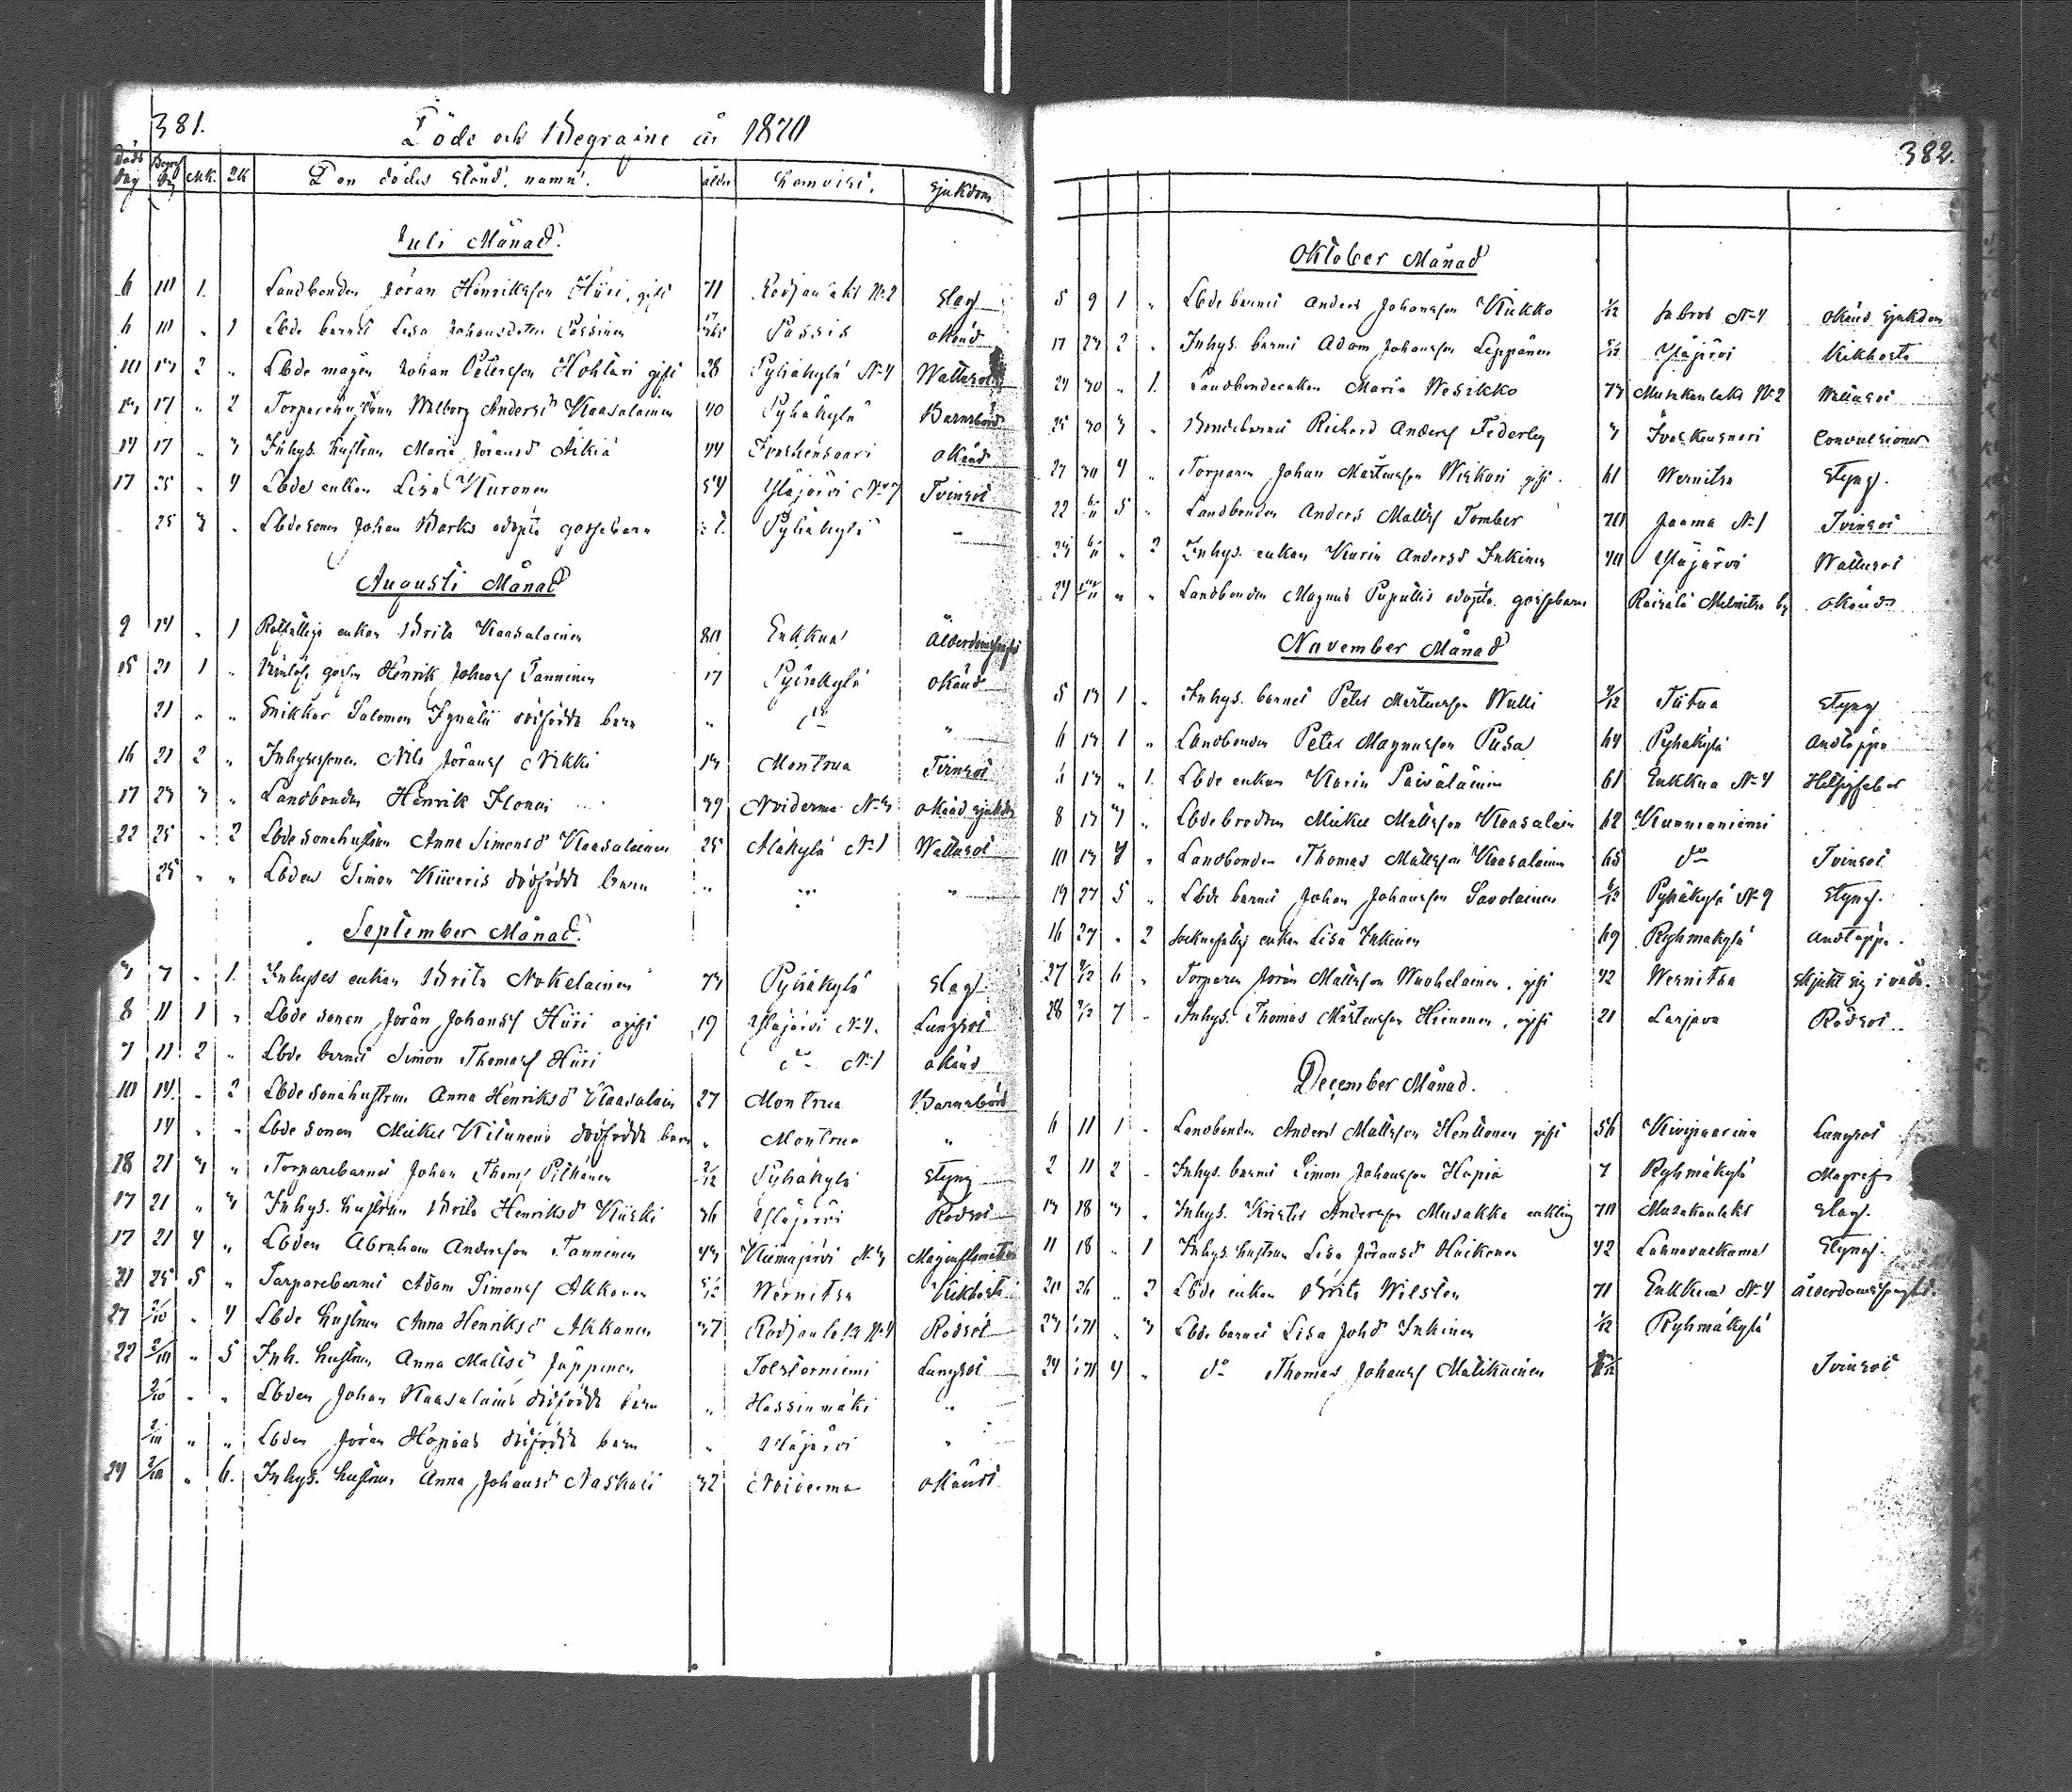 381.
Döde och Begrafne år 1870
Döds dag Begr dag Mk. Qk Den dödes stånd, namn. ålder hemvist. Sjukdom
Juli Månad.
6 10 1. Landbonden Jöran Henriksson Hiiri, gift 71 Rodjanlaks No 2 Slag
6 10 " 1 Lbde barnet Lisa Johansdotter Pässinen Passis okänd
10 13 2 " Lbde mågen Johan Petersson Kohtari gift 28 Pyhäkylä No 4 Wattusot
17 " 2 Torparehustrun Walborg Andersd Kaasalainen 40 Pyhäkylä Barnsbörd
14 17 " 3 Inhys. hustrun Maria Föransd Äikiä 44 Ivaskensaari okänd
17 25 " 4 Lbde enkan Lisa Kuronen 54 Yläjärvi Tvinsot
25 3 " Lbdesonen Johan Marks odöpta gossebarn Pyhäkylä "
Augusti Månad
9 14 " 1 Rotfattige enkan Brita Kaasalainen 80 Enkkua Ålderdomsbräcklighet
15 21 1 " gossen Henrik Johansf Tanninen 17 Pyhäkylä okänd
21 " " Snikkar Salomon Ignatii dödfödda barn " do "
16 21 2 " Inhysessonen Nils Föransf Nikki 13 Montrua Tvinsot
17 23 3 " Landbonden Henrik Ilonen 39 Noiderma No 3 okänd sjukdom
22 25 " 2 Lbde sonahustrun Anna Simonsd Kaasalainen 25 Alakylä No 1 Wattusot
25 " " Lbden Simon Kiiveris dödfödda barn " " "
September Månad.
3 7 " 1. Inhyses enkan Brita Nokelainen 73 Pyhäkylä Slag.
8 11 1 " Lbde sonen Jöran Johansf Hiiri ogift 19 Yläjärvi No 4. Lungsot
7 11 2 " Lbde barnet Simon Thomasf Hiiri do No 1 okänd
10 14. " 2 Lbde sonahustrun Anna Henriksd Kaasalain 27 Montrua Barnsbörd
14 " " Lbde sonen Mickel dödfödda barn " Montrua "
18 21 3 " Torparebarnet Johan Thoms Pitkänen 2/12 Pyhäkylä Styng
17 21 " 3 Inhys. hustrun Brita Henriksd Kiiski 36 Yläjärvi Rödsot
17 21 4 " Lbden Abraham Andersson Tanninen 43 Kiimajärvi No 3 Maginflamation
21 25 5 " Torparebarnet Adam Simonsf Akkanen 5/12 Wernitsa Kikhosta
27 2/10 " 4 Lbde hustrun Anna Henriksd Akkanen 37 Rodjanlaks No 4 Rödsot
22 2/10 " 5 Inh. hustrun Anna Matisd Jäppinen Tolstorniemi Lungsot
2/10 " " Lbden Johan Kaasalains dödfödda barn " Hassinmäki "
2/10 " " Lbden Jöran Hapias dödfödda barn " Yläjärvi "
29 2/10 " 6. Inhys. hustrun Anna Johansd Naskali 32 Noiderma okänd
382.
Oktober Månad
5 9 1 " Lbde barnet Anders Johansson Kiukko 1/12 Jabros No 4 okänd sjukdom
17 23 2 " Inhys. barnet Adam Johansson Leppänen Yläjärvi Kikhosta
24 30 " 1. Landbondeenkan Maria Wesikko 73 Musakanlaks No 2 Wattusot
25 30 3 " Bondebarnet Richard Andersf Federley 3 Ivaskensaari Convulsioner
27 30 4 " Torparen Johan Mårtensson Wiskari gift. 61 Wernitsa Styng.
22 6/11 5 " Landbonden Anders Mattsf Tomber 70 Jaama No 1 Tvinsot
6/11 " 2 Inhys. enkan Karin Andersd Inkinen 70 Yläjärvi Wattusot
" " Landbonden Magnus Puputtis odöpta gossebarn Raisälä Melnitso by okänd
November Månad
5 13 1 " Inhys. barnet Peter Mårtensson Wulli Tiitua Styng
6 13 1 " Landbonden Peter Magnusson Pusa 64 Pyhäkylä Andtäppa
13 " 1. Lbde enkan Karin Päivälainen 61 Enkkua No 4 Hetsigfeber
8 13 3 " Lbde brodren Mickel Mattsson Kaasalain 62 Kunnianiemi
10 13 4 " Landbonden Thomas Mattsson Kaasalainen 65 do Tvinsot
19 27 5 " Lbde barnet Johan Johansson Savolainen Pyhäkylä No 9 Styng.
16 27 " 2 Socknefattig enkan Lisa Inkinen 69 Ryhmäkylä Andtäppa.
27 4/12 6 " Torparen Jöran Mattsson Wauhelainen, gift 42 Wernitsa Skjutit sig i våda.
28 4/12 7 " Inhys. Thomas Mårtensson Hienonen, ogift 21 Larjava Rödsot
December Månad.
6 11 1 " Landbonden Anders Mattsson Henttonen gift 56 Kivipaarina Lungsot
2 11 2 " Inhys. barnet Simon Johansson Hapia 7 Ryhmäkylä Magref
13 18 3 " Inhys. Krister Andersson Musakka enkling 70 Musakanlaks Slag.
11 18 " 1 Inhys hustrun Lisa Föransd Huikonen 42 Lahnavalkama Styng.
20 26 " 2 Lbde enkan Brita Wilsten 71 Enkkua No 4 Ålderdomsbräckl.
23 1/71 " 3 Lbde barnet Lisa Johsd Inkinen 1/12 Ryhmäkylä
24 1/71 4 " do Thomas Johansf Matikainen Tvinsot